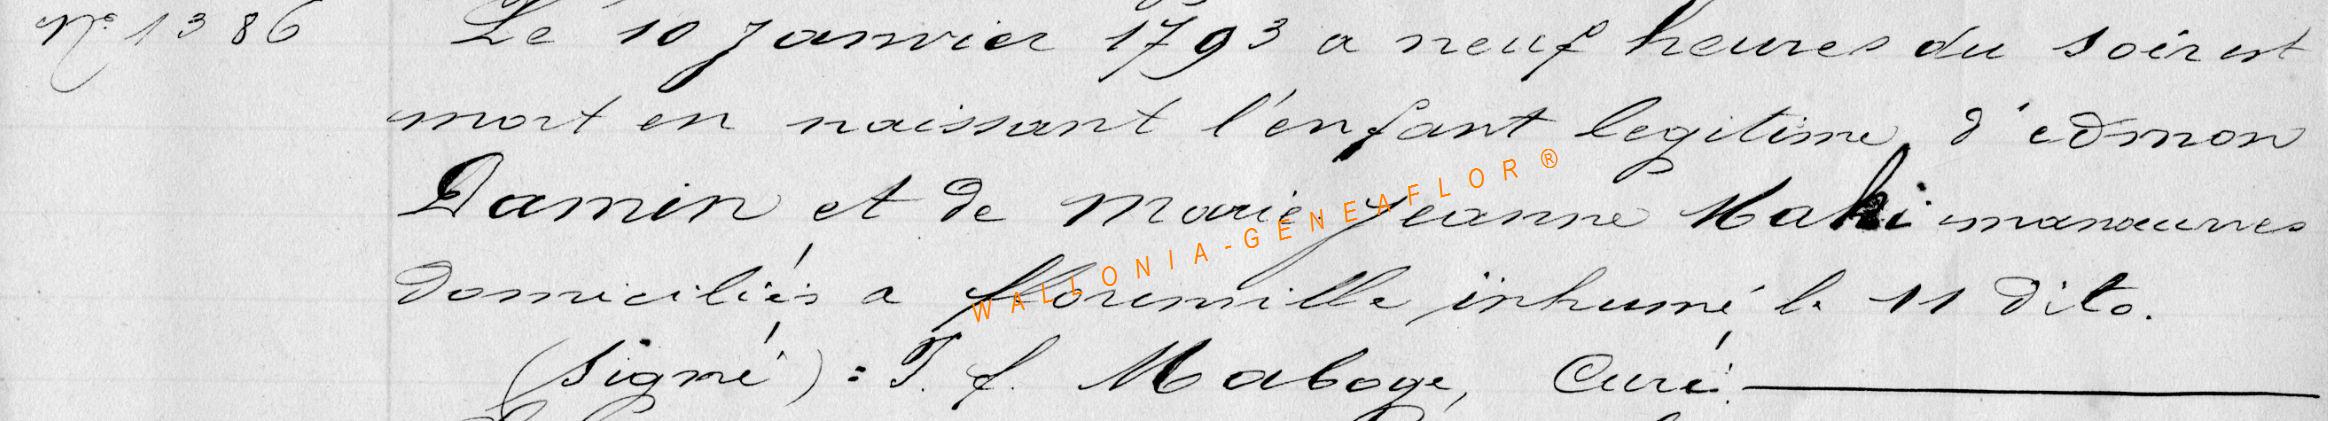 N° 1386
Le 10 Janvier 1793 a neuf heures du soir est
mort en naissant l'enfant legitime d'edmon
Damin et de Marie Jeanne Maki manœuvres
domiciliés a florenville inhumé le 11 dito.
(signé) : J. f. Maboge, Curé.
WALLONIA-GENEAFLOR ®